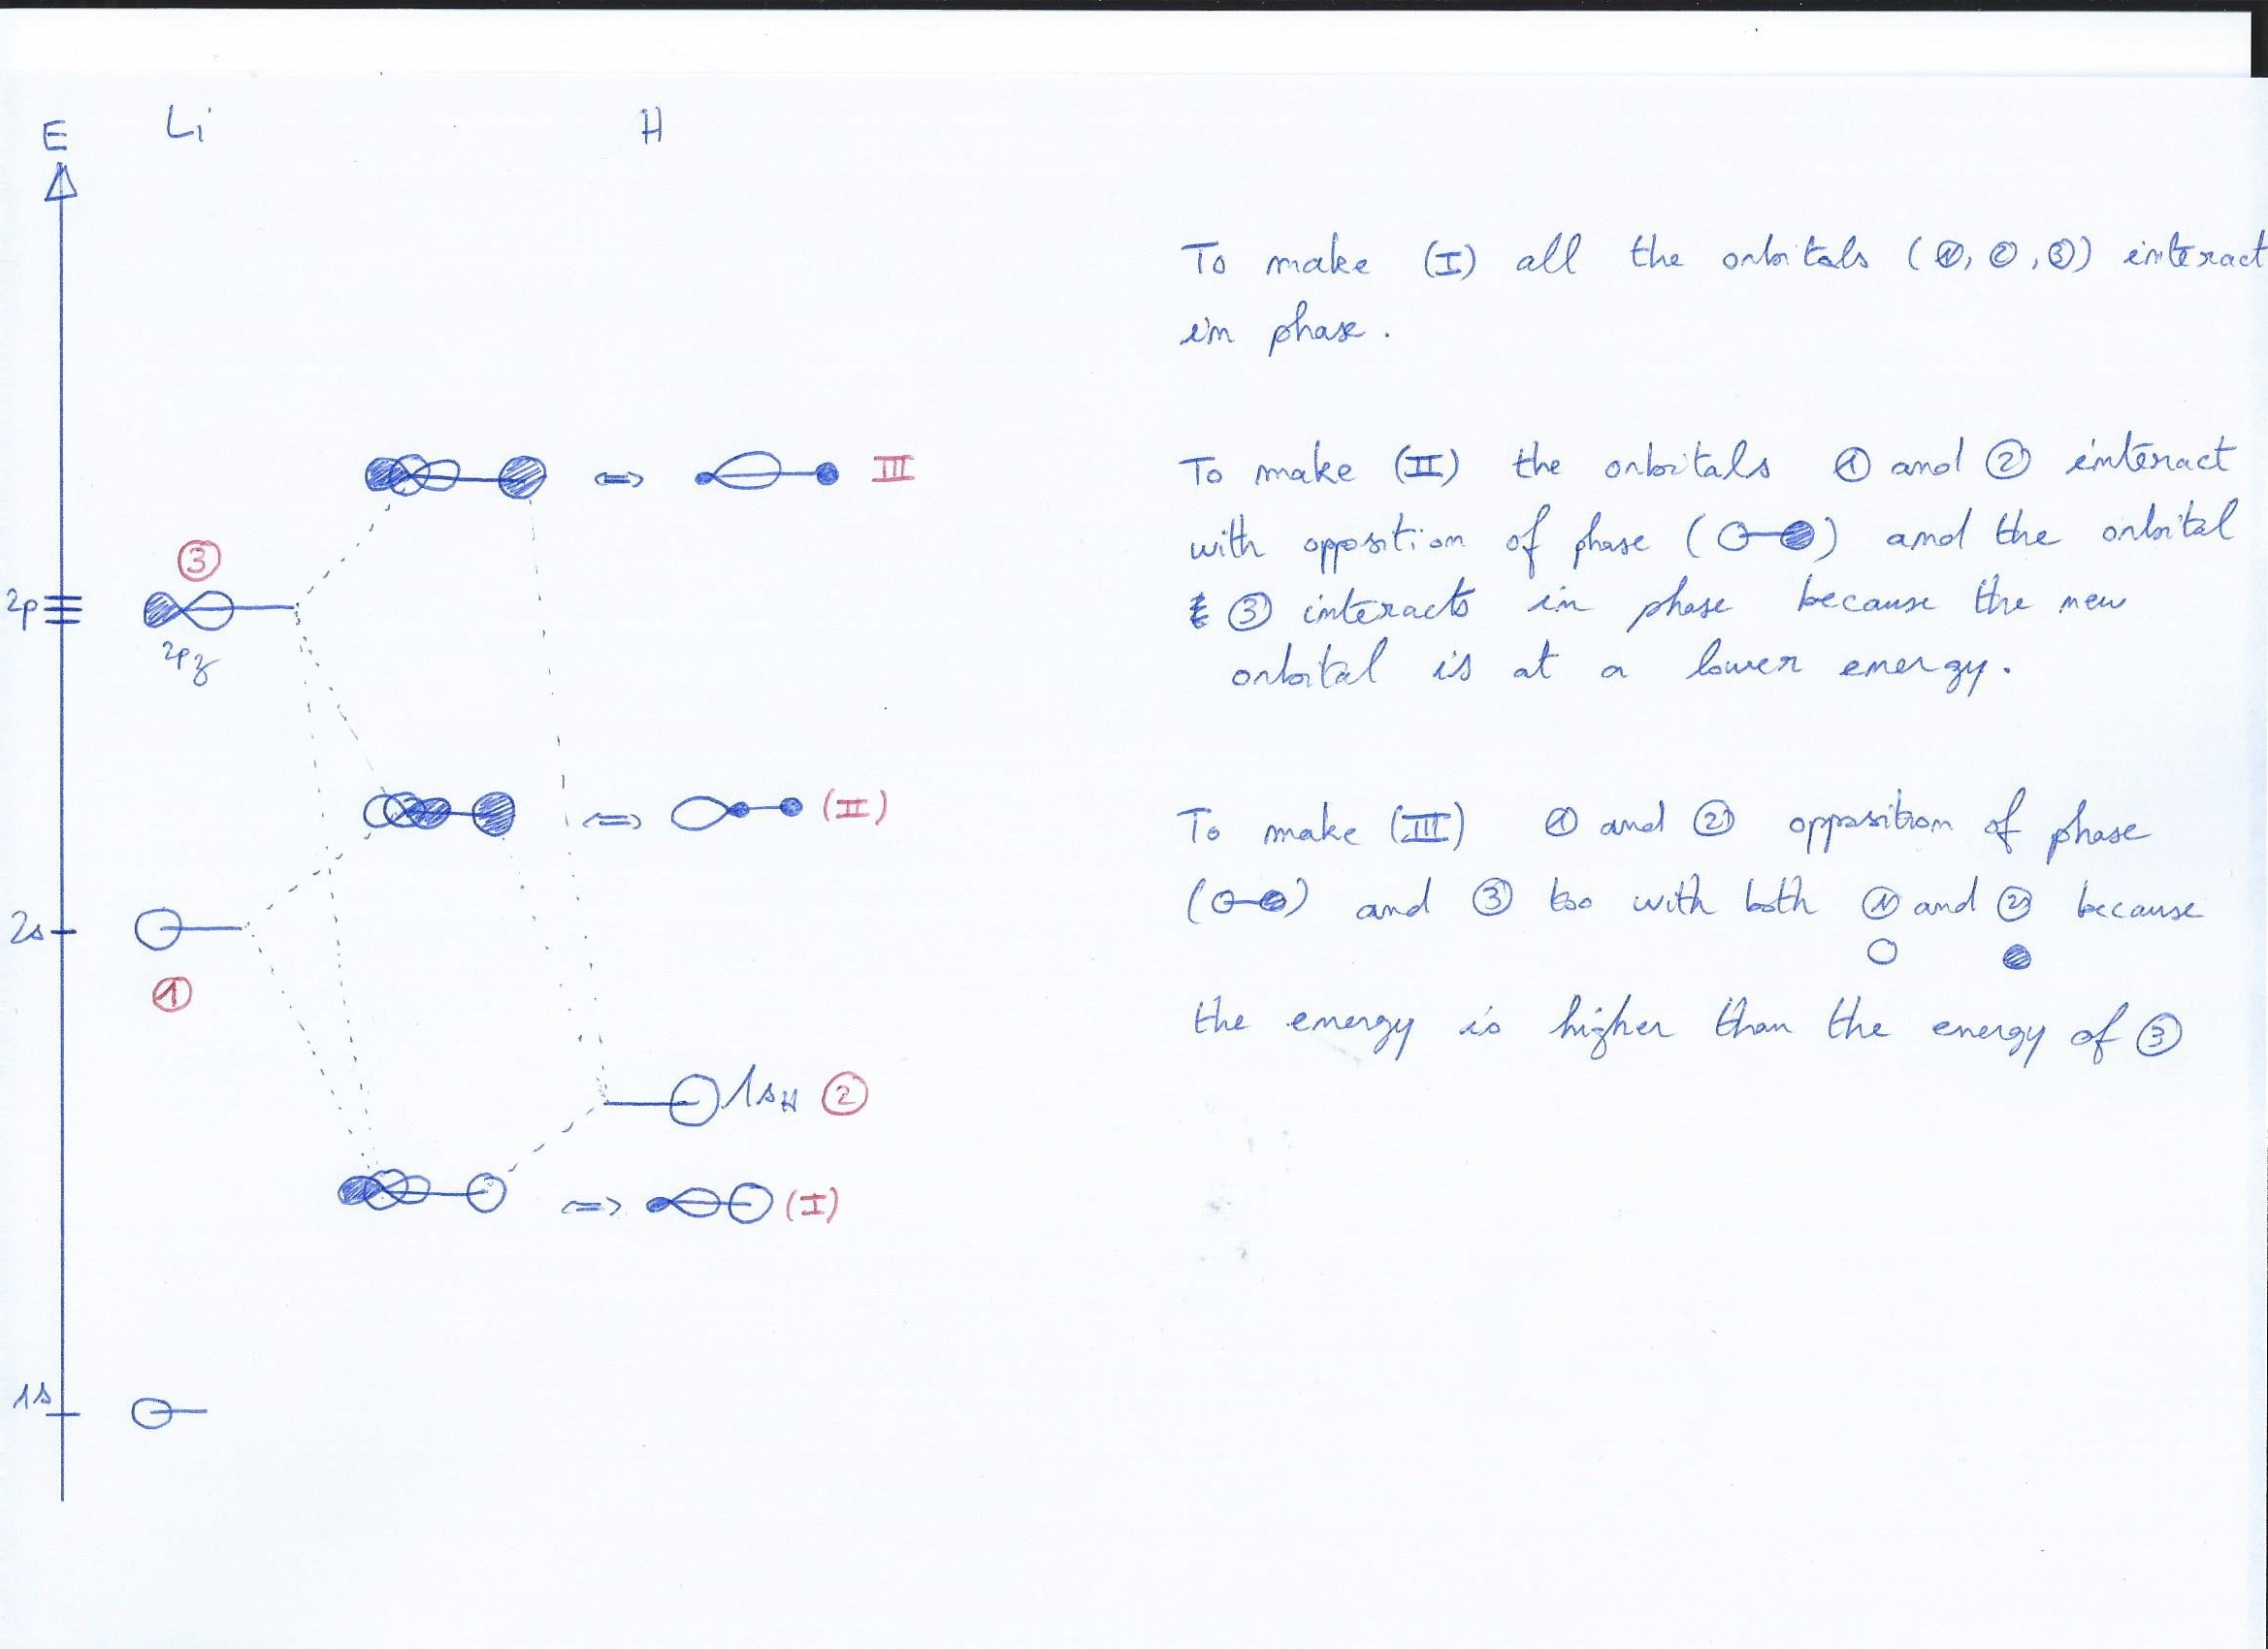 E Li H
To make (I) all the orbitals (①, ②, ③) interact
in phase.
III
To make (II) the orbitals ① and ② interact
with opposition of phase ( ) and the orbital
③
2p
③ interacts in phase because the new
2pz
orbital is at a lower energy.
(II)
To make (III) ① and ② opposition of phase
( ) and ③ too with both ① and ② because
2s
①
the energy is higher than the energy of ③
1sH ②
(I)
1s